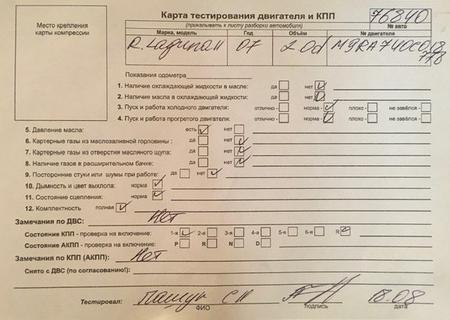 Место крепления карты компрессии
Карта тестирования двигателя и КПП
(прикалывать к листу разборки автомобиля)
76840
№ авто
Марка, модель Год Объём № двигателя
R. Laguna II 07 2.0d M9RA740C018
778
Показания одометра
1. Наличие охлаждающей жидкости в масле: да нет
2. Наличие масла в охлаждающей жидкости: да нет
3. Пуск и работа холодного двигателя: отлично - норма - плохо - не завёлся -
4. Пуск и работа прогретого двигателя: отлично - норма - плохо - не завёлся -
5. Давление масла: есть нет
6. Картерные газы из маслозаливной горловины : да нет
7. Картерные газы из отверстия масляного щупа: да нет
8. Наличие газов в расширительном бачке: да нет
9. Посторонние стуки или шумы при работе: да нет
10. Дымность и цвет выхлопа: норма
11. Состояние сцепления: норма
12. Комплектность полная
Замечания по ДВС: Нет
Состояние КПП - проверка на включение: 1-я 2-я 3-я 4-я 5-я 6-я R
Состояние АКПП - проверка на включение: P R N D
Замечания по КПП (АКПП): Нет
Снято с ДВС (по согласованию!):
Тестировал: 18.08
ФИО подпись дата